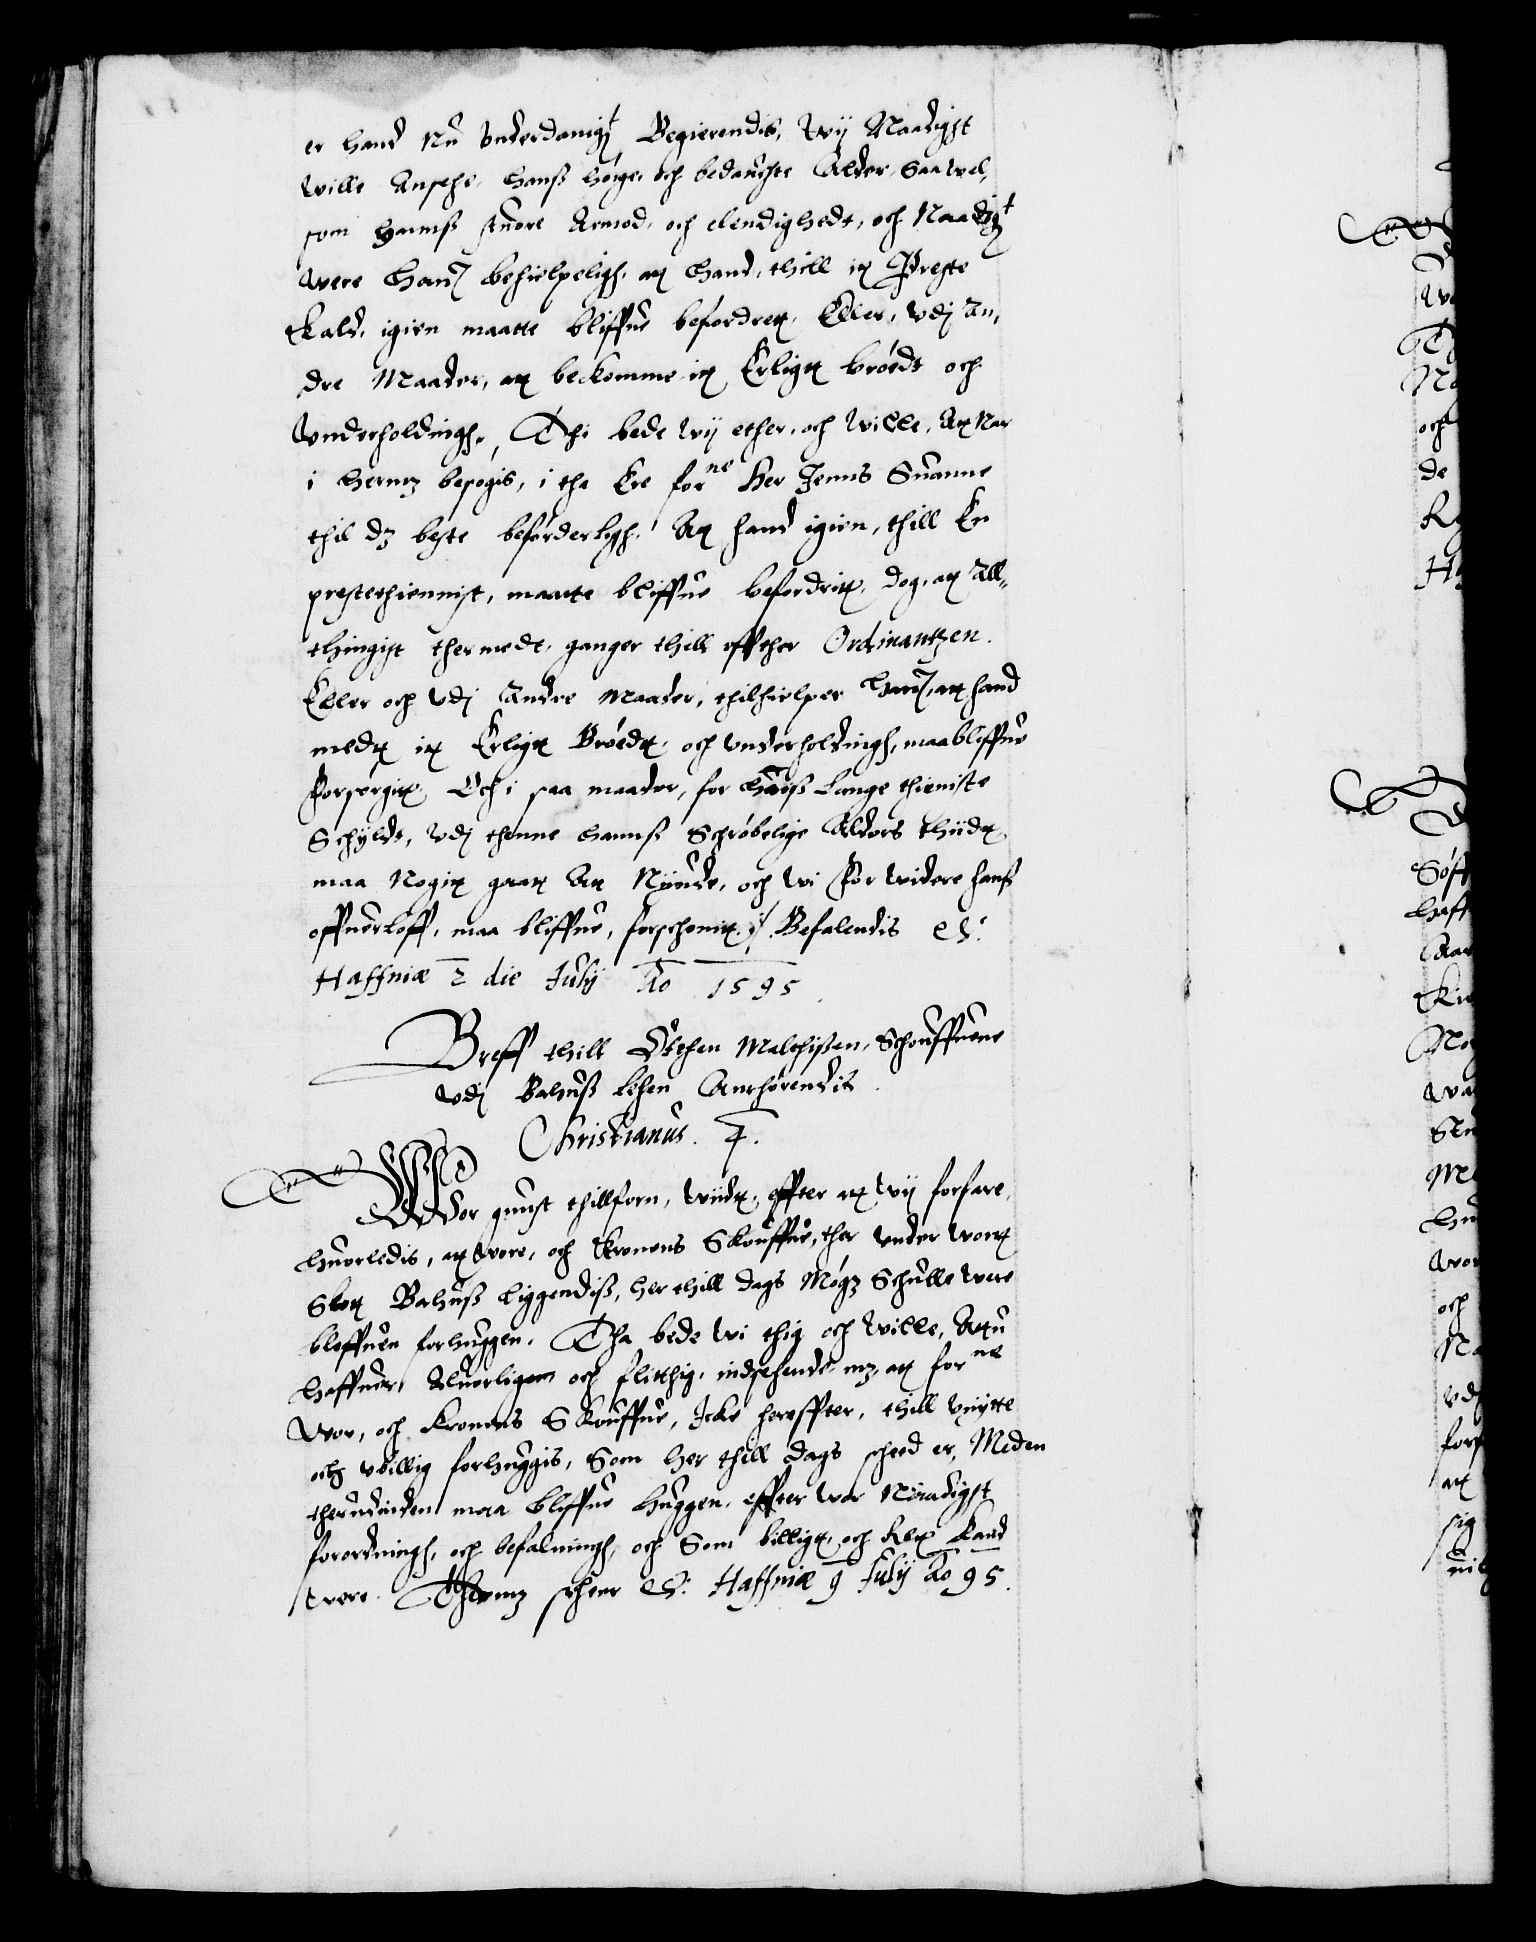 er hand Nu Underdanigt Begierendis, Wij Naadigst
wille Ansehe, hanß høige och bedauchte Alder, Saa vel,
som hannß stuore Armod, och elendighedt, och Naadigt
were hannom behielpeligh, att hand, thill itt Preste
Kald, igien maatte bliffue befordrett, Eller, Udj An,
dre Maader, att bekomme itt Erligtt brødt och
Underholdingh, Thi bede Wij ether, och Wille, Att Nar
i hermz besøgis, i tha Ere forne Her Jenns Suanne
thil dz beste beforderligh, Att hand igien, thill En
prestethiennist, maatte bliffue befordritt, dog, att All,,
thingist thermedt, ganger thill effther Ordinantzen.
Eller och Udj Andre Maader, thilhielper hannom, att hand
medtt itt Erligtt Brødtt, och Underholdingh, maa bliffue
Forsørgitt, Och i saa maader, for hanß Lange thieniste
Schyldt, Udj thenne hannß Schrøbelige Alders thiidtt
maa Nogitt gaatt Att Nyude, och Wi For widere hanß
offuerløff, maa bliffue, forschonitt. Befalendis etc:
Haffniæ 2 die Julij Ao 1595
Breff thill Othen Malthißen, Schouffuene
Udj Bahuß Lehen Anrhørendis
Christianus 4.
Wor gunst thillforn, Wiidtt, effter att Wij forfare,
huorledis, att Wore, och Kronens Skouffue, ther Under Wortt
Slott Bahuß Liggendiß, her thill dags Møgz Schulle Were
bleffuen forhuggen, Tha bede Wi thig och Wille, Att du
haffuer, Aluorligen och flitthig, indsehende mz, att forne
Wor, och Kronens Skouffue, Icke hereffter, thill Unytte
och Ubillig forhuggis, Som her thill dags scheed er, Meden
therudinden maa bliffue huggen, effter Wor Naadigst
forordningh, och befalningh, och Som billigt, och Rett Kand
Were. Thermz scheer etc: Haffniæ 9 Julij Ao 95.